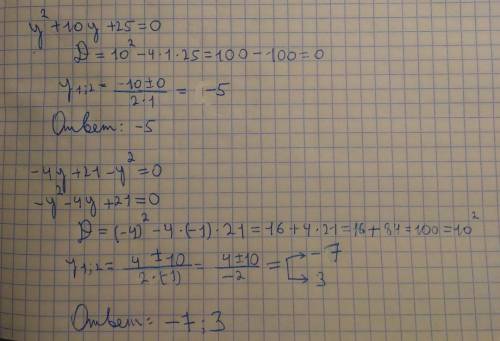 y²+10y+25=0
D=10²-4·1·25=100-100=0
y1;2=(-10±0)/(2·1)=-5
Ответ: -5
-4y+21-y²=0
-y²-4y+21=0
D=(-4)²-4·(-1)·21=16+4·21=16+84=100=10²
y1;2=(4±10)/(2·(-1))=(4±10)/(-2)= → -7
→ 3
Ответ: -7; 3